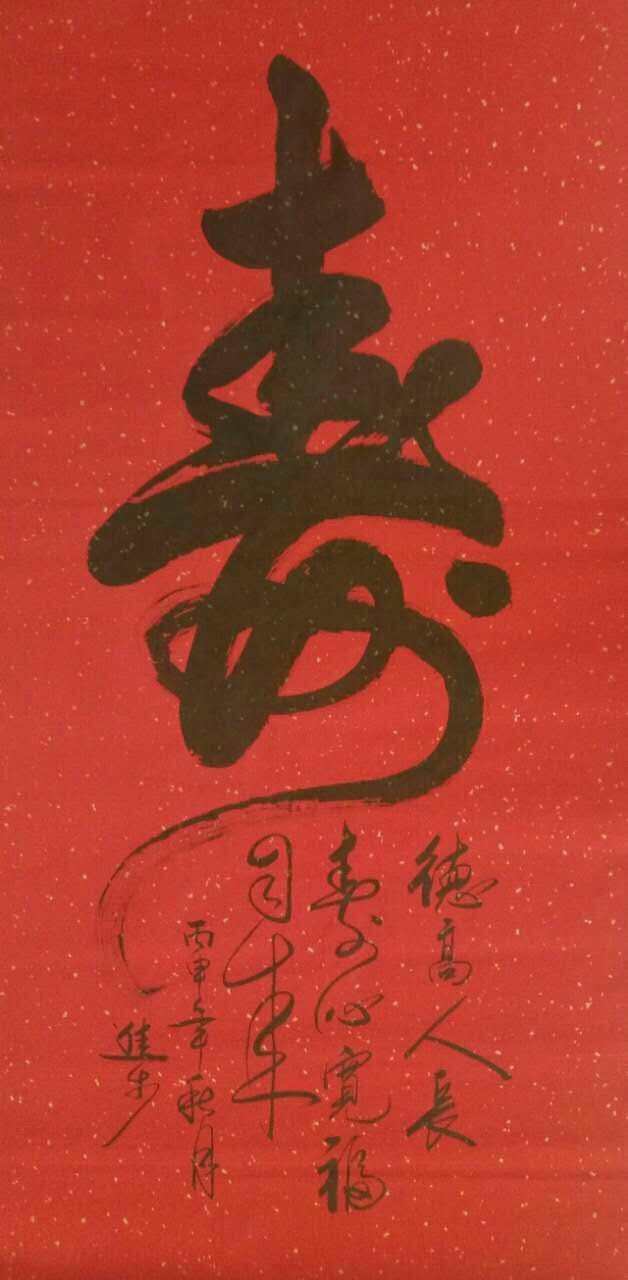 壽
德高人長
壽心寬福
自来
丙申年秋月
進步